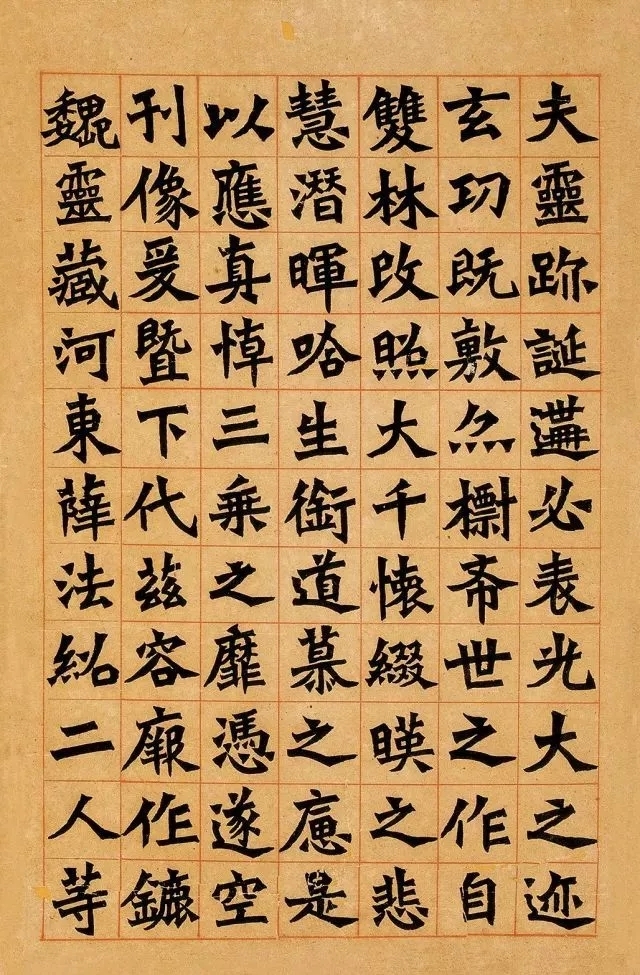 夫靈跡誕遘必表光大之迹
玄功既敷亦摽希世之作自
雙林改照大千懷綴暎之悲
慧潛暉唅生銜道慕之是
以應真悼三乘之靡憑遂空
刊像爰暨下代茲容作鑣
魏靈藏河東薛法紹二人等